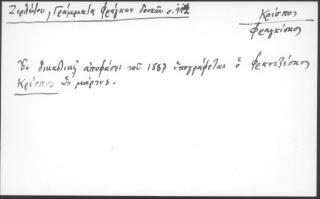 Ζερλέντου, Γράμματα Φράγκων Δουκῶν σ.
Κρίσπος
Φραγκίσκος
Ἐν δικαστικῇ ἀποφάσει τοῦ 1567 ὑπογράφεται ὁ Φραντζέσκος
Κρίσπος ὡς μάρτυς.